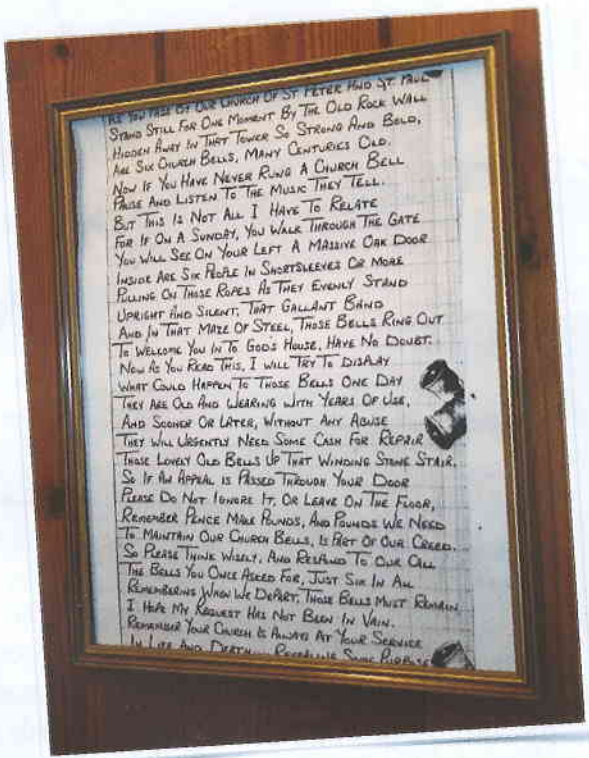 As You Pass By Our Church Of St Peter And St. Paul
Stand Still For One Moment By The Old Rock Wall
Hidden Away In That Tower So Strong And Bold,
Are Six Church Bells, Many Centuries Old.
Now If You Have Never Rung A Church Bell
Pause And Listen To The Music They Tell.
But This Is Not All I Have To Relate
For If On A Sunday, You Walk Through The Gate
You Will See On Your Left A Massive Oak Door
Inside Are Six People In Shortsleeves Or More
Pulling On Those Ropes As They Evenly Stand
Upright And Silent, That Gallant Band
And In That Maze Of Steel, Those Bells Ring Out
To Welcome You In To God's House, Have No Doubt.
Now As You Read This, I Will Try To Display
What Could Happen To Those Bells One Day
They Are Old And Wearing With Years Of Use,
And Sooner Or Later, Without Any Abuse
They Will Urgently Need Some Cash For Repair
Those Lovely Old Bells Up That Winding Stone Stair.
So If An Appeal Is Passed Through Your Door
Please Do Not Ignore It, Or Leave On The Floor,
Remember Pence Make Pounds, And Pounds We Need
To Maintain Our Church Bells, Is Part Of Our Creed.
So Please Think Wisely, And Respond To Our Call
The Bells You Once Asked For, Just Six In All
Remembering When We Depart, Those Bells Must Remain
I Hope My Request Has Not Been In Vain.
Remember Your Church Is Always At Your Service
In Life And Death Some Purpose